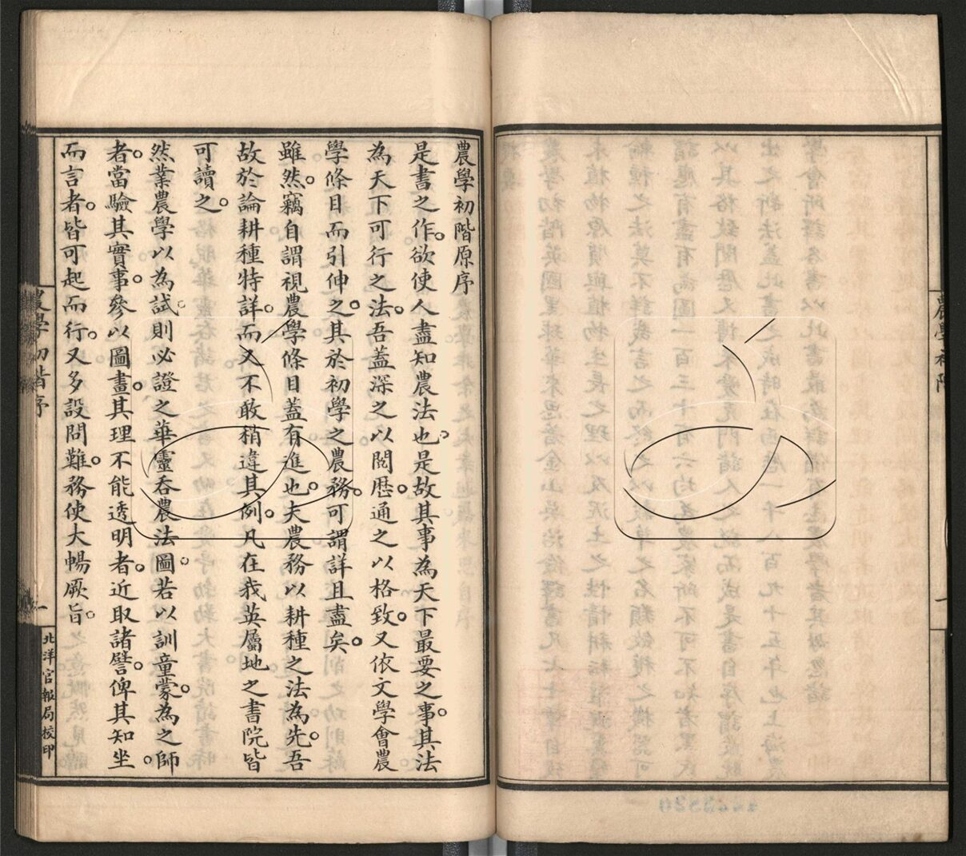 農學初階原序
是書之作。欲使人盡知農法也。是故其事為天下最要之事。其法
為天下可行之法。吾蓋深之以閱歷。通之以格致。又依文學會農
學條目而引伸之。其於初學之農務。可謂詳且盡矣。
雖然。竊自謂視農學條目蓋有進也。夫農務以耕種之法為先。吾
故於論耕種特詳。而又不敢稍違其例。凡在我英屬地之書院皆
可讀之。
然業農學以為試。則必證之華靈吞農法圖。若以訓童蒙。為之師
者。當驗其實事。參以圖畫。其理不能透明者。近取諸譬。俾其知坐
而言者。皆可起而行。又多設問難。務使大暢厥旨。
農學初階序
一
北洋官報局校印
農學初階